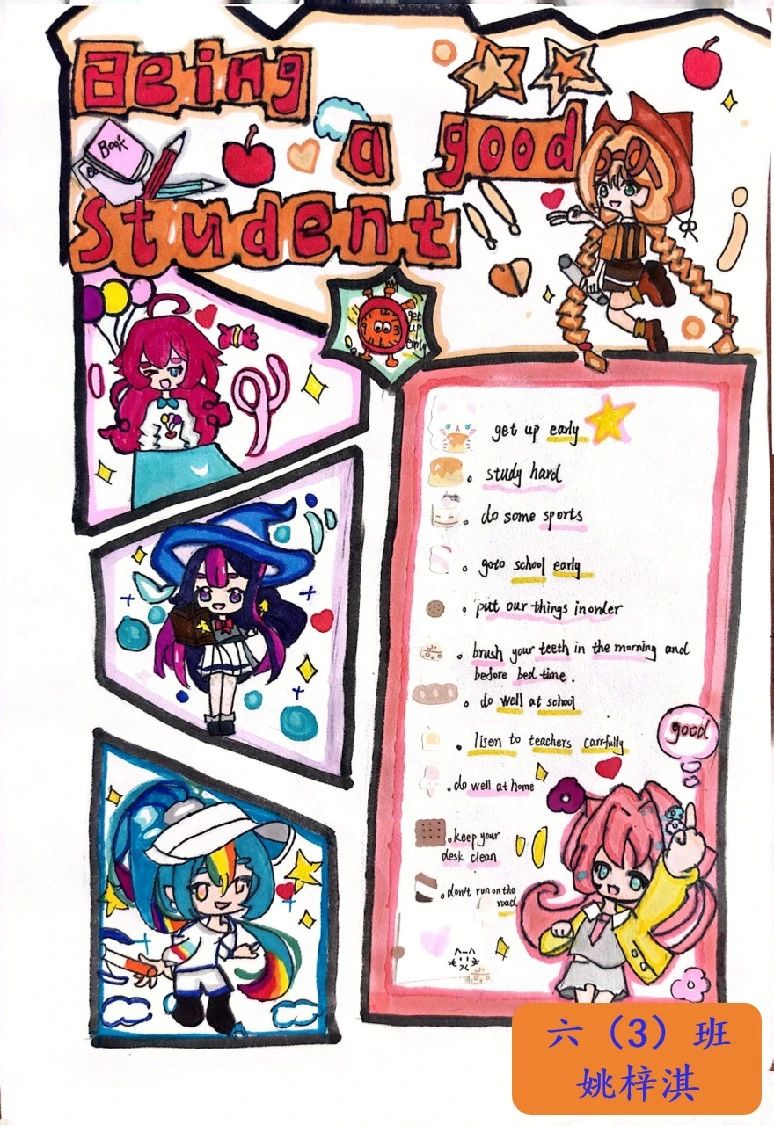 Being
a good
Book
student
get
up
early
get up early
study hard
do some sports
goto school early
put our things in order
brush your teeth in the morning and
before bed time.
do well at school
lisen to teachers carrfully
good
do well at home
keep your
desk clean
don't run on the
road
六（3）班
姚梓淇